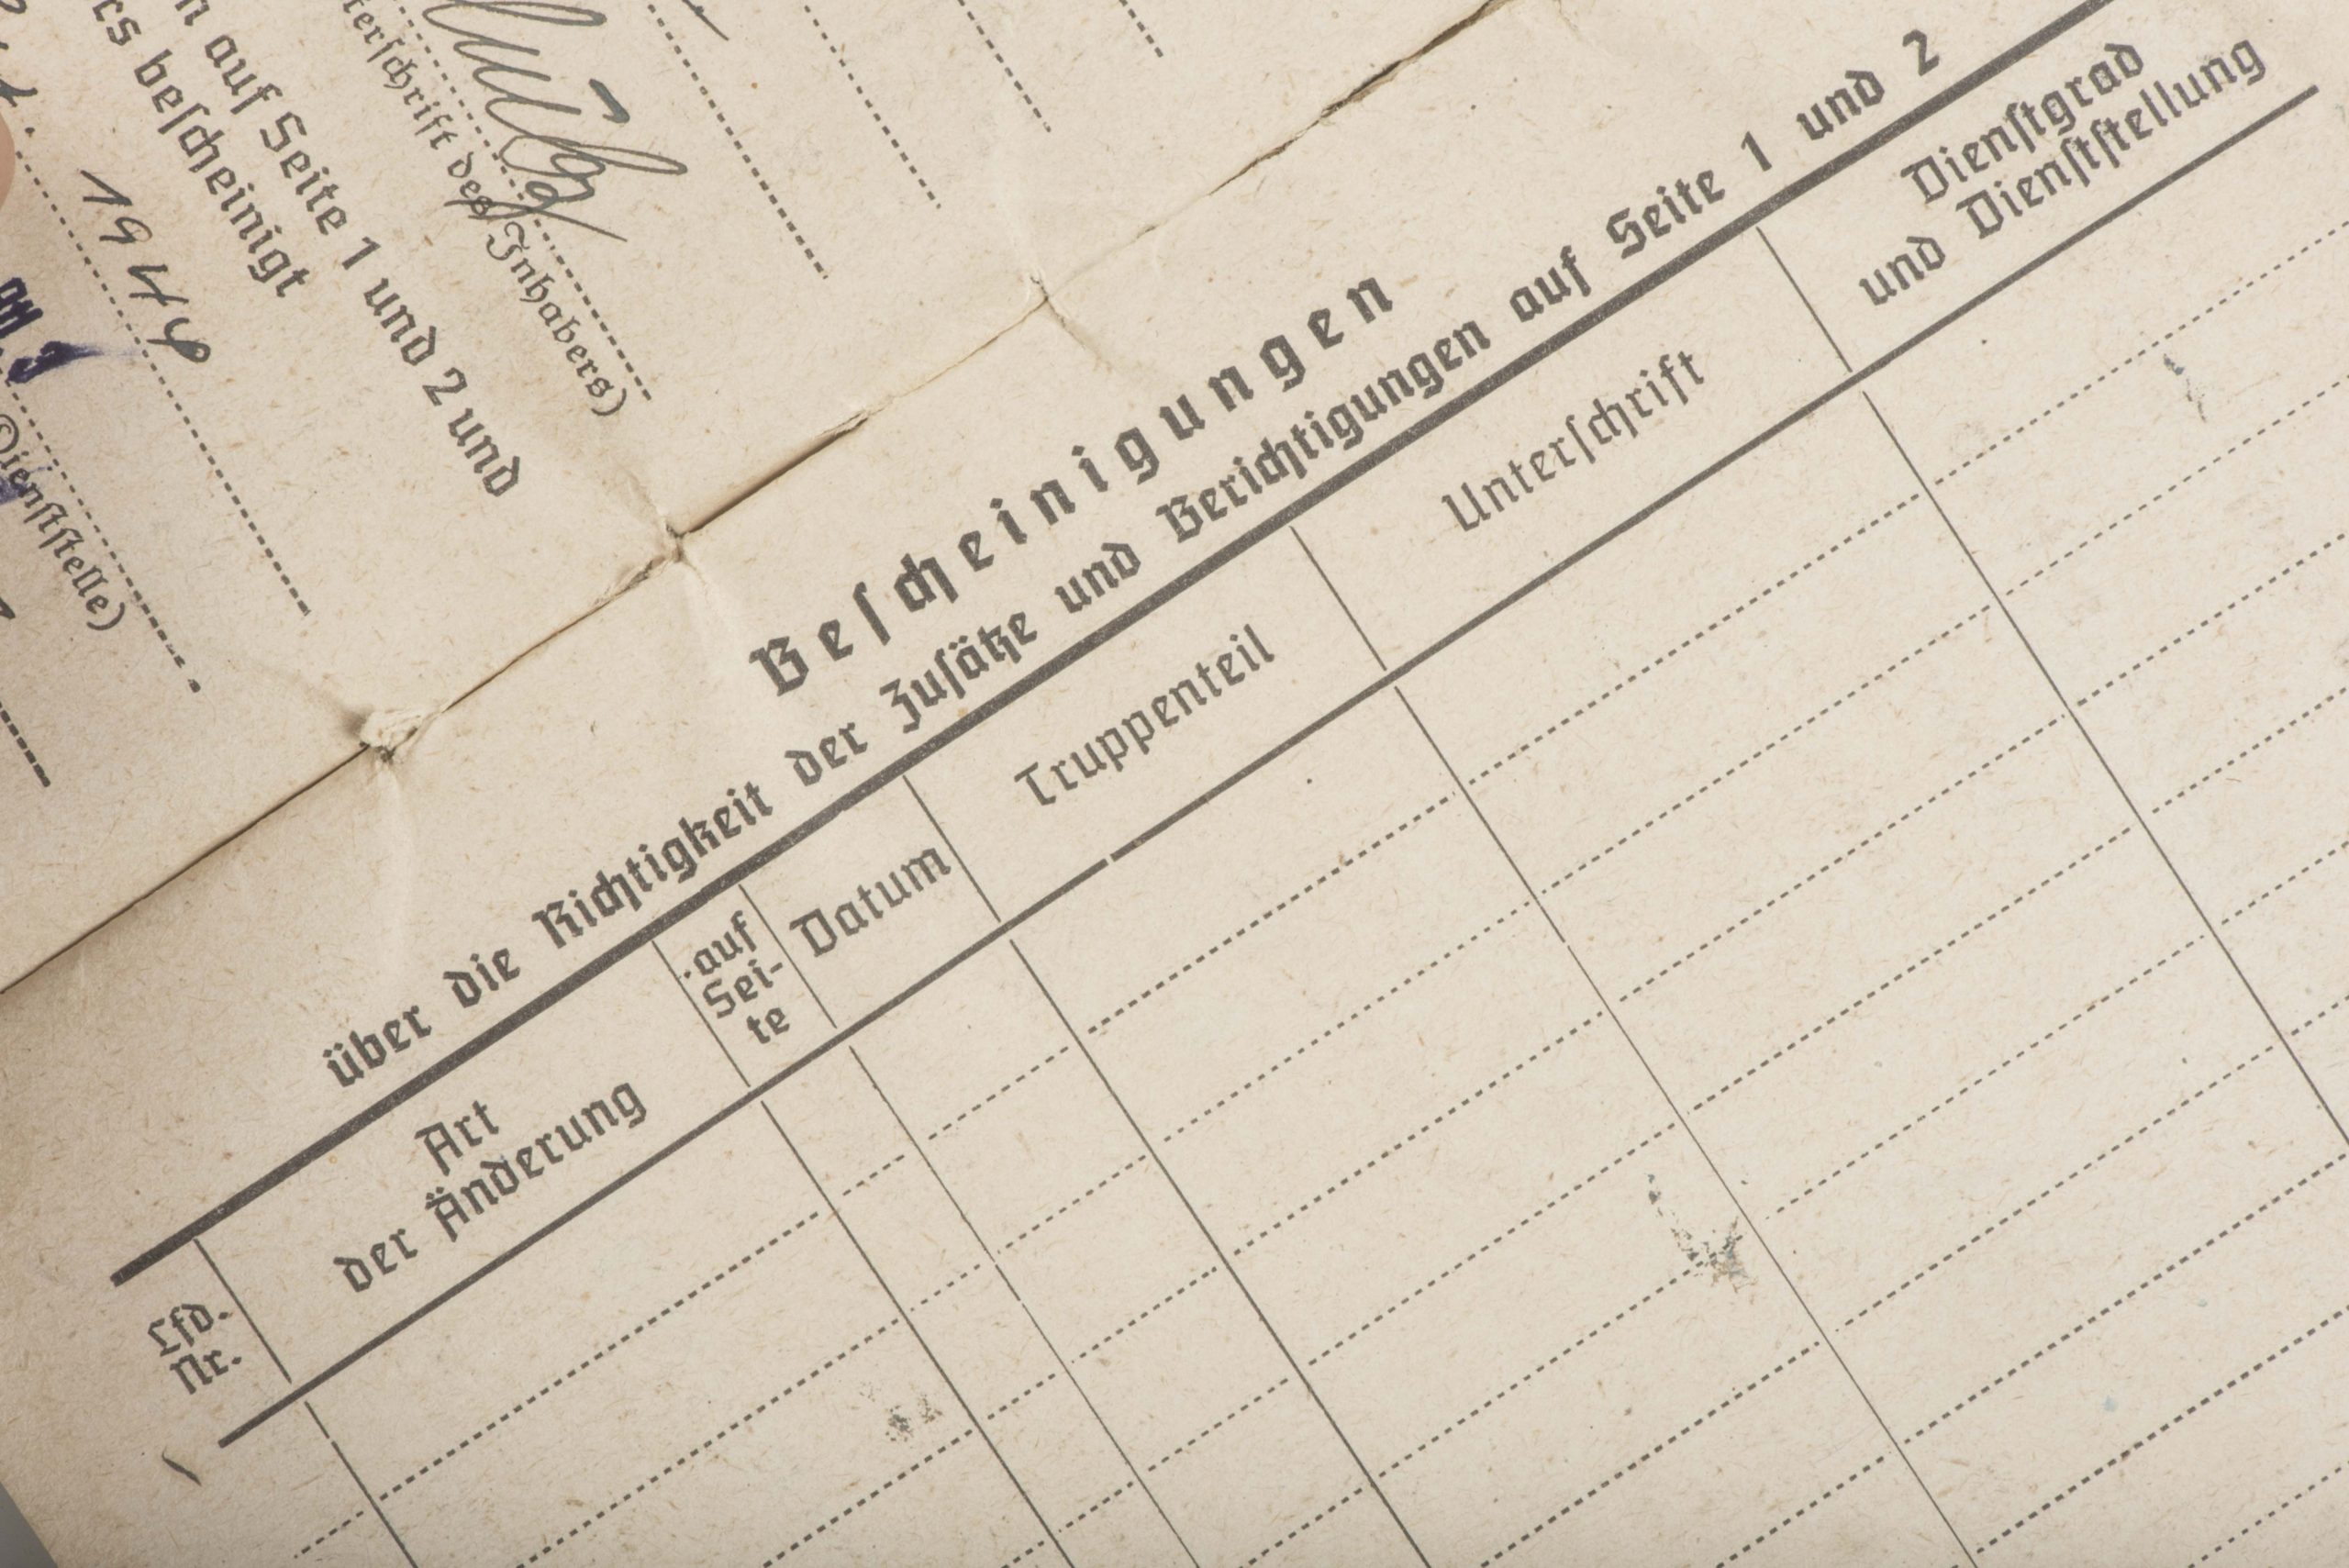 n auf Seite 1 und 2 und
rs bescheinigt
terschrift des Inhabers)
1944
Dienststelle)
Bescheinigungen
über die Richtigkeit der Zusätze und Berichtigungen auf Seite 1 und 2
Lfd.
Nr.
Art
der Änderung
auf
Sei-
te
Datum
Truppenteil
Unterschrift
Dienstgrad
und Dienststellung